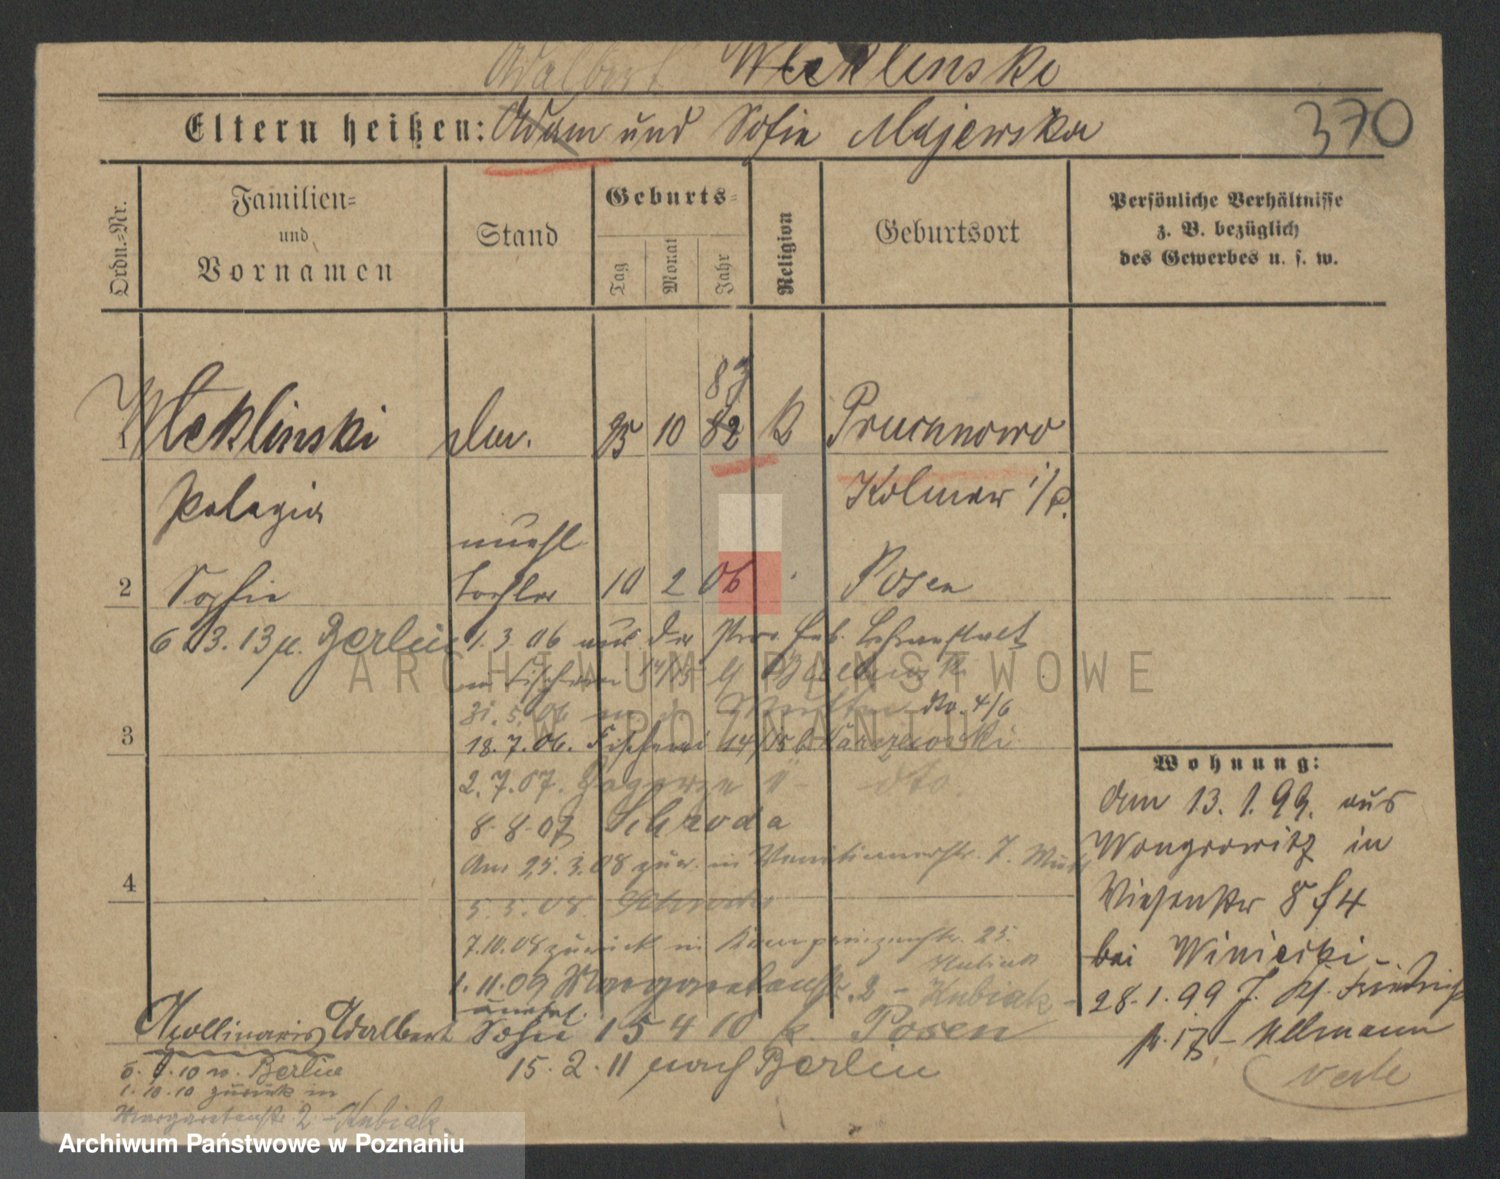 Adalbert Wleklinski
Eltern heißen: Adam und Sofie Majewska 370
Ordn.=Nr.
Familien=
und
Vornamen
Stand
Geburts=
Tag
Monat
Jahr
Religion
Geburtsort
Persönliche Verhältnisse
z. B. bezüglich
des Gewerbes u. s. w.
83
1 Wleklinski 25 10 82 K Prucnowo
Pelagia Kolmar i/P.
unehl
2 Sofie Tochter 10 2 06 Posen
6. 3. 13 Berlin 1. 3. 06 aus der Prov Heb. Lehranstalt
in Fischerei 14/15
31. 5. 06 No. 4/6
3 18. 7. 06. Fischerei 14/15
2. 7. 07. dto.
8. 8. 07 Schroda
Am 25. 3. 08 zur. in Venetianerstr. 7.
4
5. 5. 08. Schroda
7.10.08 zurück in Kronprinzenstr. 25.
Kubiak
1. 11. 09 Margaretenstr. 2 - Kubiak -
unehel.
Apollinaris Adalbert Sohn 15 4 10 k. Posen
15. 2. 11 nach Berlin
10 n. Berlin
1. 10. 10 zurück in
Margaretenstr. 2 - Kubiak
Wohnung:
Am 13. 1. 99. aus
Wongrowitz in
Wiesenstr 8 f4
bei Winiecki -
28. 1. 99
17 - Ullmann
ARCHIWUM PAŃSTWOWE
W POZNANIU
Archiwum Państwowe w Poznaniu